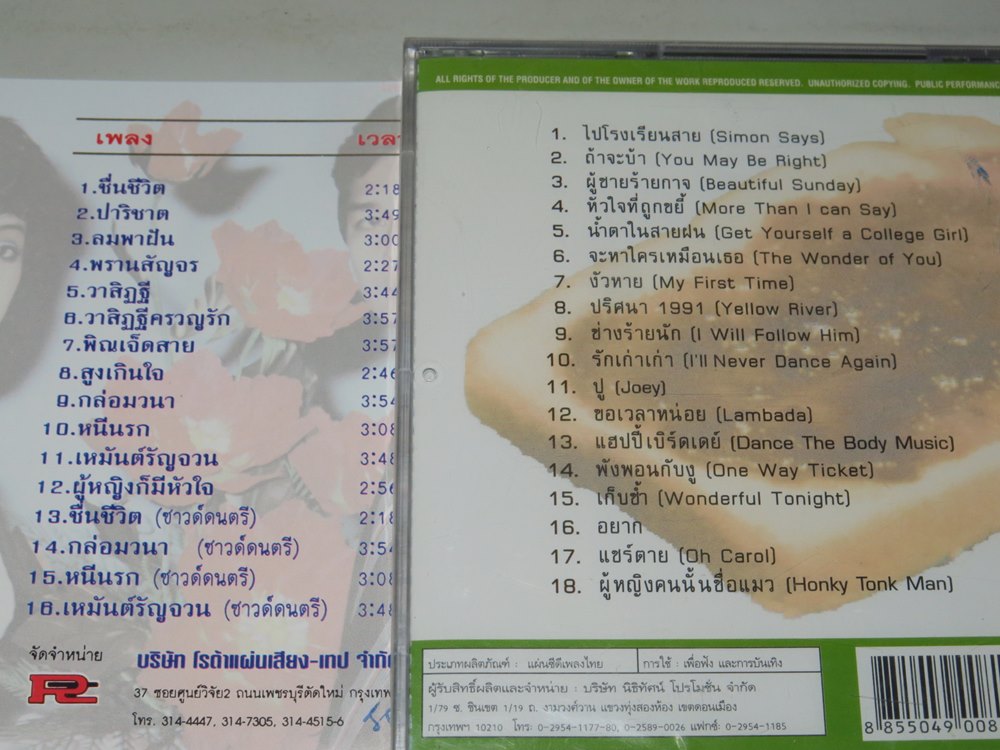 เพลง เวลา
1.ชื่นชีวิต 2:18
2.ปาริชาต 3:49
3.ลมพาฝัน 3:00
4.พรานสัญจร 2:27
5.วาสิฏฐี 3:44
6.วาสิฏฐีครวญรัก 3:57
7.พิณเจ็ดสาย 3:57
8.สูงเกินใจ 2:46
9.กล่อมวนา 3:54
10.หนีนรก 3:08
11.เหมันต์รัญจวน 3:48
12.ผู้หญิงก็มีหัวใจ 2:56
13.ชื่นชีวิต (ซาวด์ดนตรี) 2:18
14.กล่อมวนา (ซาวด์ดนตรี) 3:54
15.หนีนรก (ซาวด์ดนตรี) 3:08
16.เหมันต์รัญจวน (ซาวด์ดนตรี) 3:48
จัดจำหน่าย บริษัท โรต้าแผ่นเสียง-เทป จำกัด
37 ซอยศูนย์วิจัย2 ถนนเพชรบุรีตัดใหม่ กรุงเทพ
โทร. 314-4447, 314-7305, 314-4515-6
ALL RIGHTS OF THE PRODUCER AND OF THE OWNER OF THE WORK REPRODUCED RESERVED. UNAUTHORIZED COPYING. PUBLIC PERFORMANC
1. ไปโรงเรียนสาย (Simon Says)
2. ถ้าจะบ้า (You May Be Right)
3. ผู้ชายร้ายกาจ (Beautiful Sunday)
4. หัวใจที่ถูกขยี้ (More Than I can Say)
5. น้ำตาในสายฝน (Get Yourself a College Girl)
6. จะหาใครเหมือนเธอ (The Wonder of You)
7. งัวหาย (My First Time)
8. ปริศนา 1991 (Yellow River)
9. ช่างร้ายนัก (I Will Follow Him)
10. รักเก่าเก่า (I'll Never Dance Again)
11. ปู (Joey)
12. ขอเวลาหน่อย (Lambada)
13. แฮปปี้เบิร์ดเดย์ (Dance The Body Music)
14. พังพอนกับงู (One Way Ticket)
15. เก็บช้ำ (Wonderful Tonight)
16. อยาก
17. แชร์ตาย (Oh Carol)
18. ผู้หญิงคนนั้นชื่อแมว (Honky Tonk Man)
ประเภทผลิตภัณฑ์ : แผ่นซีดีเพลงไทย การใช้ : เพื่อฟัง และการบันเทิง
ผู้รับสิทธิ์ผลิตและจำหน่าย : บริษัท นิธิทัศน์ โปรโมชั่น จำกัด
1/79 ซ. ชินเขต 1/19 ถ. งามวงศ์วาน แขวงทุ่งสองห้อง เขตดอนเมือง
กรุงเทพฯ 10210 โทร: 0-2954-1177-80, 0-2589-0026 แฟกซ์: 0-2954-1185
8 855049 008